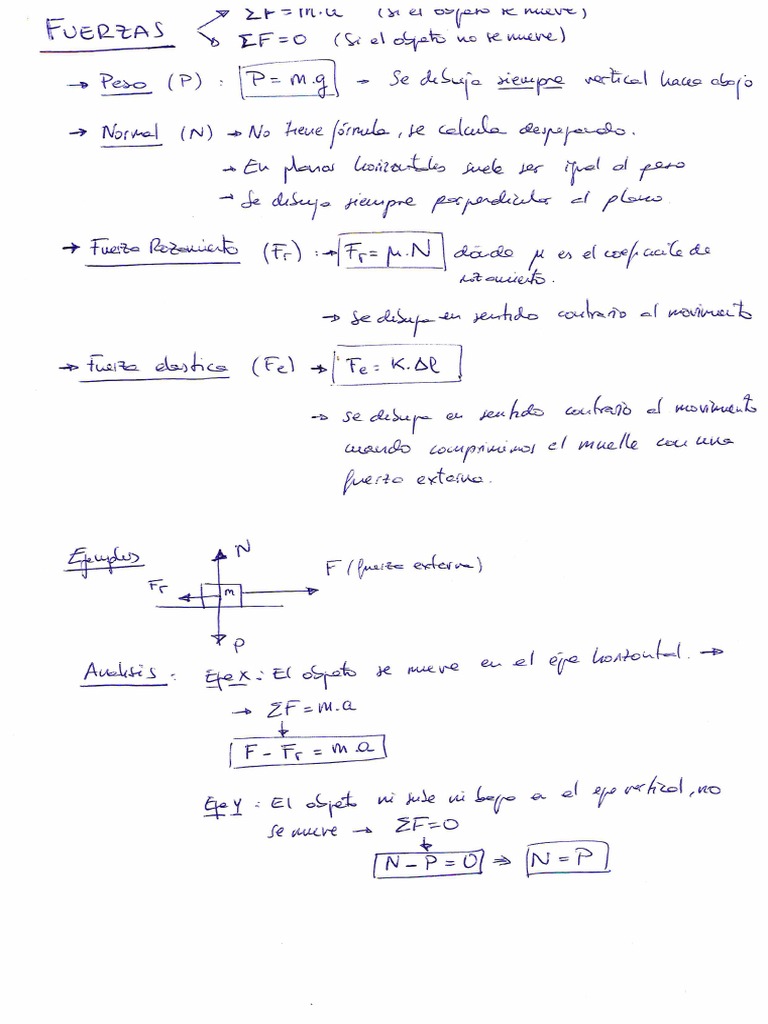 FUERZAS
ΣF = m.a (si el objeto se mueve)
ΣF = 0 (Si el objeto no se mueve)
→ Peso (P) : P = m.g → Se dibuja siempre vertical hacia abajo
→ Normal (N) → No tiene fórmula, se calcula despejando.
→ En planos horizontales suele ser igual al peso
→ Se dibuja siempre perpendicular al plano.
→ Fuerza Rozamiento (Fr) : → Fr = μ.N donde μ es el coeficiente de
rozamiento.
→ Se dibuja en sentido contrario al movimiento
→ Fuerza elastica (Fe) → Fe = K.Δl
→ Se dibuja en sentido contrario al movimiento
cuando comprimimos el muelle con una
fuerza externa.
Ejemplos
N
Fr
m
F (fuerza externa)
P
Analisis : Eje X : El objeto se mueve en el eje horizontal. →
→ ΣF = m.a
F - Fr = m.a
Eje Y : El objeto ni sube ni baja en el eje vertical, no
se mueve → ΣF = 0
N - P = 0 ⇒ N = P